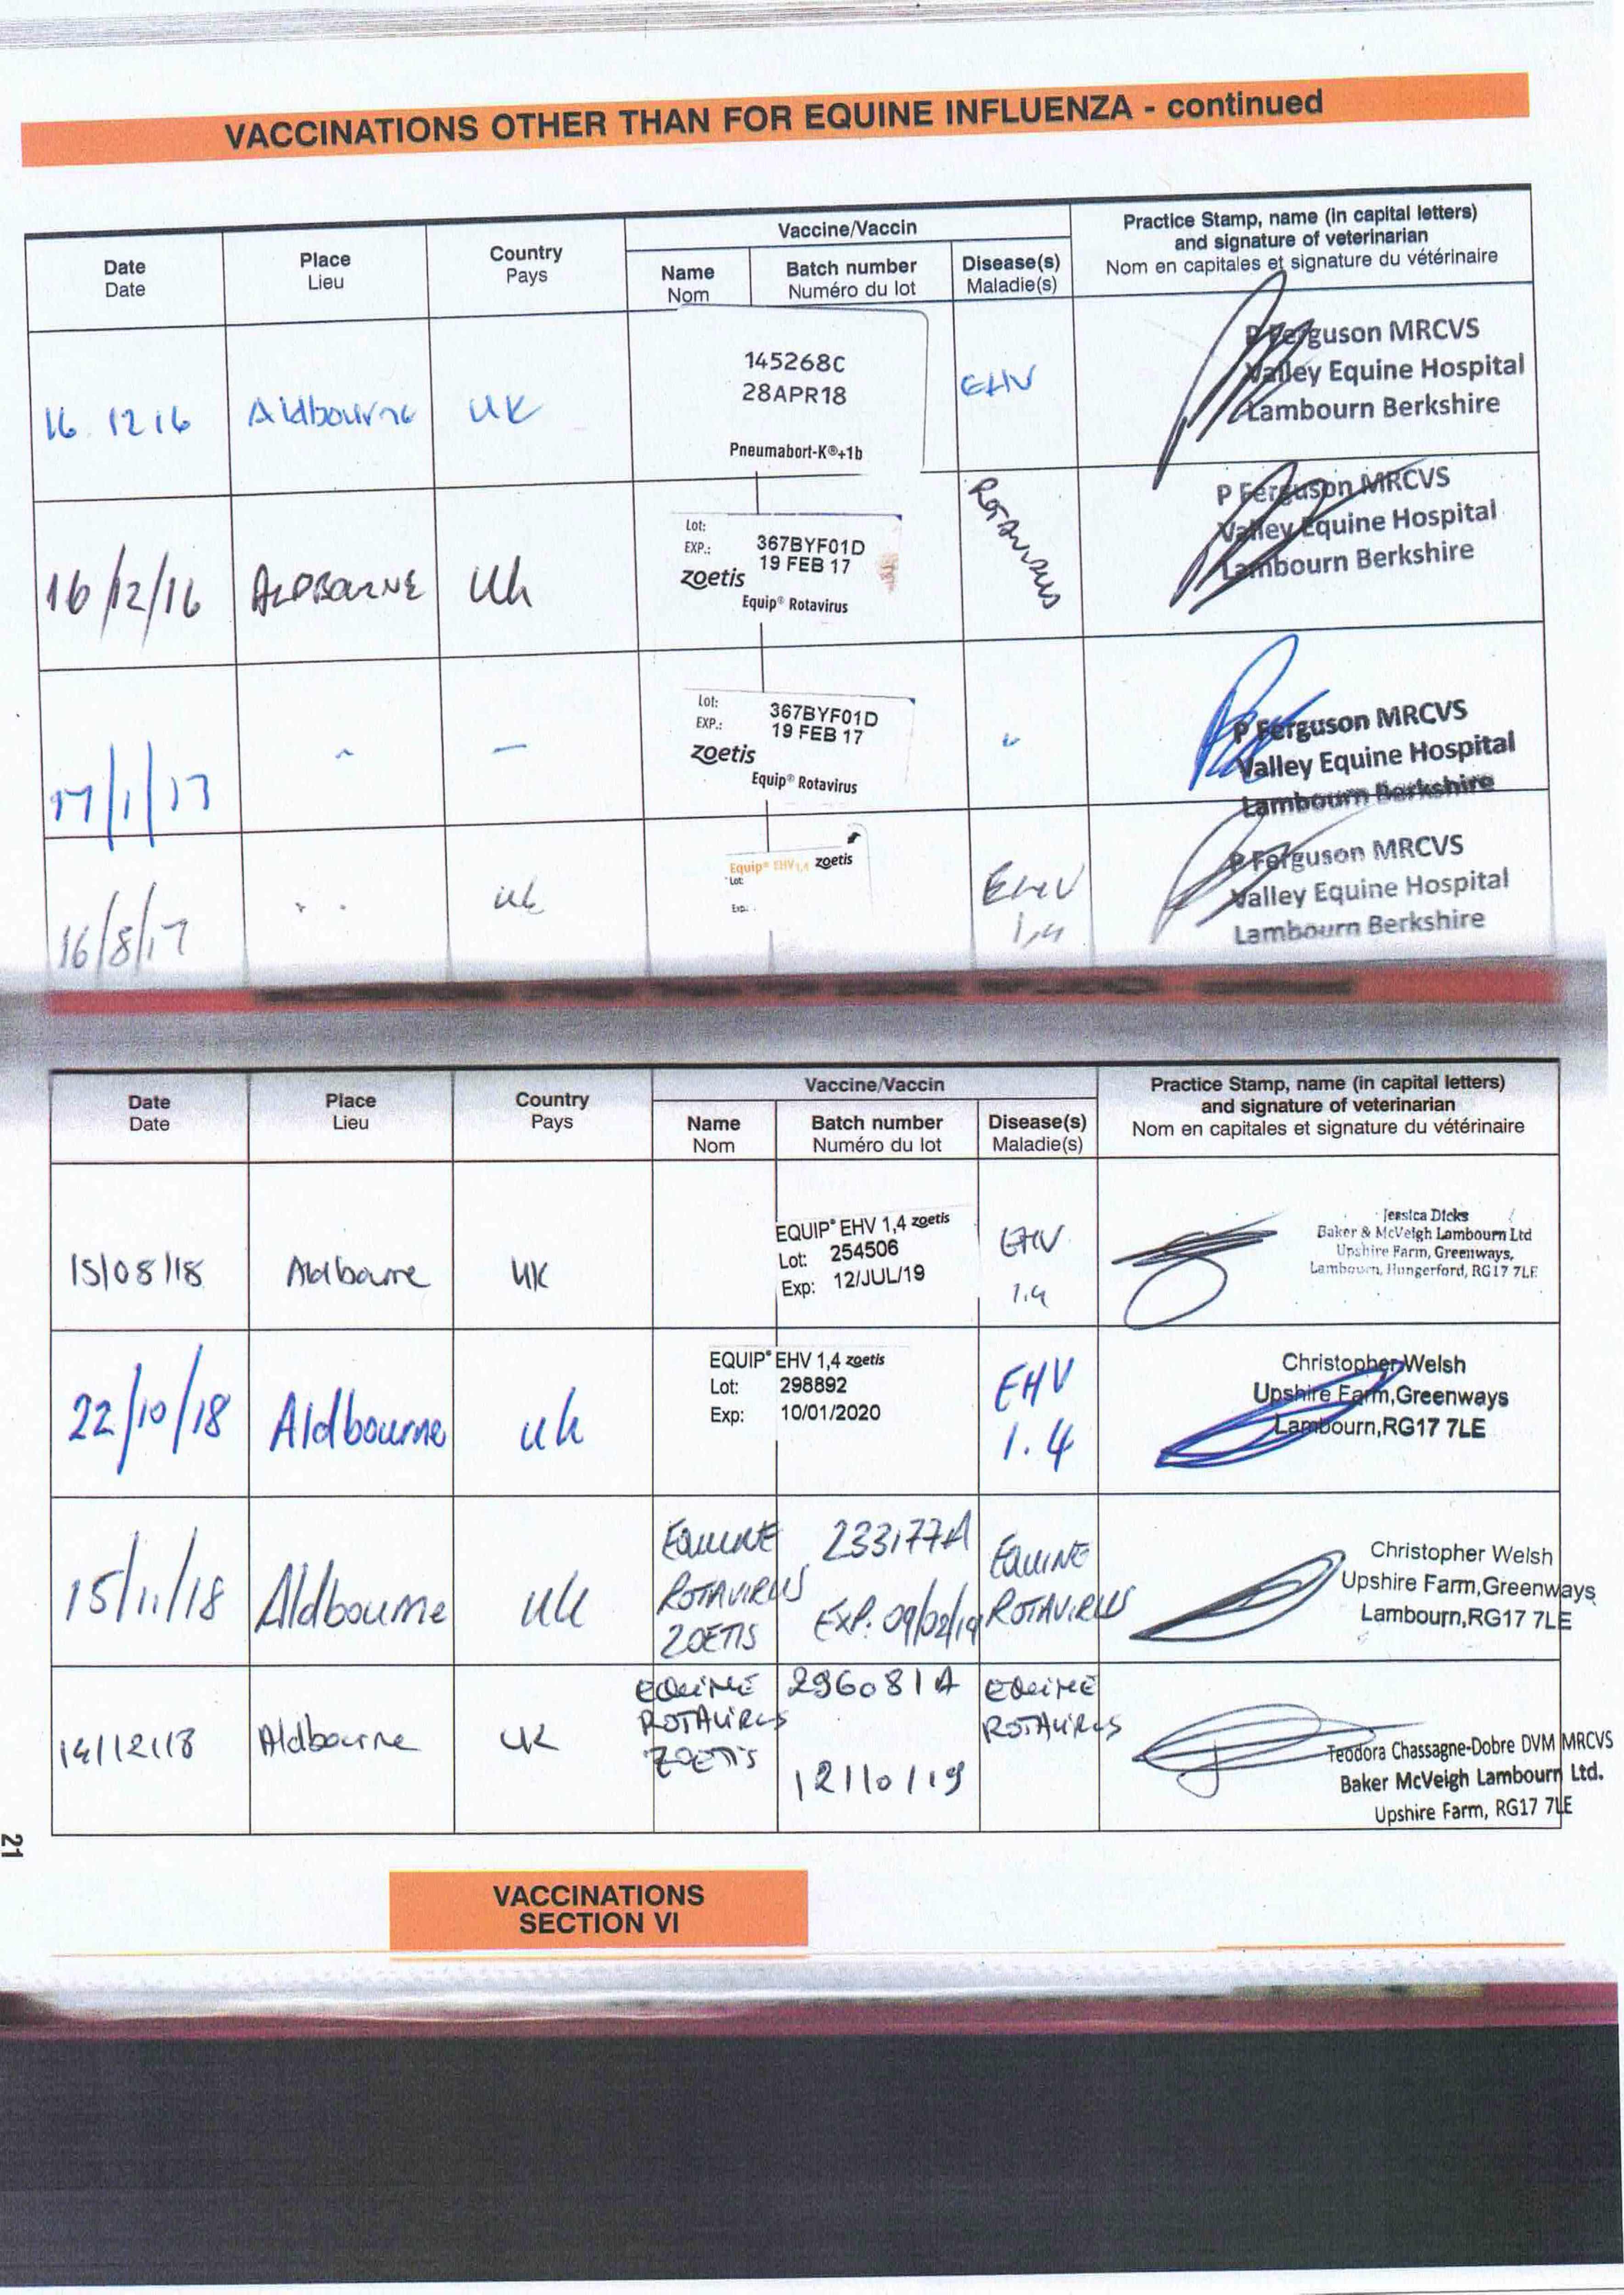 VACCINATIONS OTHER THAN FOR EQUINE INFLUENZA - continued
Date
Date
Place
Lieu
Country
Pays
Vaccine/Vaccin
Name
Nom
Batch number
Numéro du lot
Disease(s)
Maladie(s)
Practice Stamp, name (in capital letters)
and signature of veterinarian
Nom en capitales et signature du vétérinaire
16.12 16
Aldbourne
UK
145268C
28APR18
Pneumabort-K®+1b
EHV
P Ferguson MRCVS
Valley Equine Hospital
Lambourn Berkshire
16/12/16
ALDBOURNE
Uk
Lot: 367BYF01D
EXP.: 19 FEB 17
zoetis
Equip® Rotavirus
ROTAVIRUS
P Ferguson MRCVS
Valley Equine Hospital
Lambourn Berkshire
17/1/17
Lot: 367BYF01D
EXP.: 19 FEB 17
zoetis
Equip® Rotavirus
P Ferguson MRCVS
Valley Equine Hospital
Lambourn Berkshire
16/8/17
uk
Equip® EHV 1,4 zoetis
Lot:
Exp.:
EHV
1,4
P Ferguson MRCVS
Valley Equine Hospital
Lambourn Berkshire
Date
Date
Place
Lieu
Country
Pays
Vaccine/Vaccin
Name
Nom
Batch number
Numéro du lot
Disease(s)
Maladie(s)
Practice Stamp, name (in capital letters)
and signature of veterinarian
Nom en capitales et signature du vétérinaire
15/08/18
Aldbourne
UK
EQUIP® EHV 1,4 zoetis
Lot: 254506
Exp: 12/JUL/19
EHV
1.4
Jessica Dicks
Baker & McVeigh Lambourn Ltd
Upshire Farm, Greenways,
Lambourn, Hungerford, RG17 7LF
22/10/18
Aldbourne
uk
EQUIP® EHV 1,4 zoetis
Lot: 298892
Exp: 10/01/2020
EHV
1.4
Christopher Welsh
Upshire Farm,Greenways
Lambourn,RG17 7LE
15/11/18
Aldbourne
uk
EQUINE
ROTAVIRUS
ZOETIS
233177A
EXP: 09/02/19
EQUINE
ROTAVIRUS
Christopher Welsh
Upshire Farm,Greenways
Lambourn,RG17 7LE
14/12/18
Aldbourne
UK
EQUINE
ROTAVIRUS
ZOETIS
296081A
12/10/19
EQUINE
ROTAVIRUS
Teodora Chassagne-Dobre DVM MRCVS
Baker McVeigh Lambourn Ltd.
Upshire Farm, RG17 7LE
21
VACCINATIONS
SECTION VI